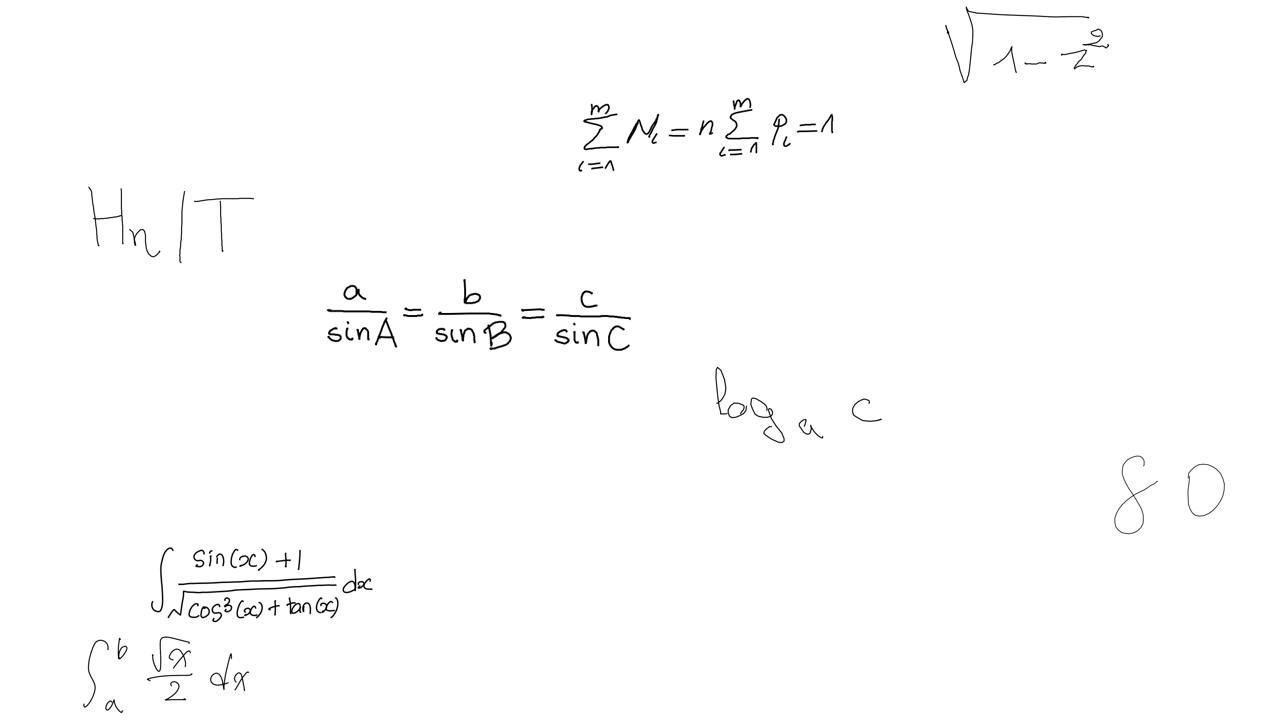 \sqrt{1-z^2}
\sum_{i=1}^{m} N_i = n \sum_{i=1}^{m} P_i = 1
H_n / T
\frac{a}{\sin A} = \frac{b}{\sin B} = \frac{c}{\sin C}
\log_a c
80
\int \frac{\sin(x)+1}{\sqrt{\cos^3(x)+\tan(x)}} dx
\int_a^b \frac{\sqrt{x}}{2} dx